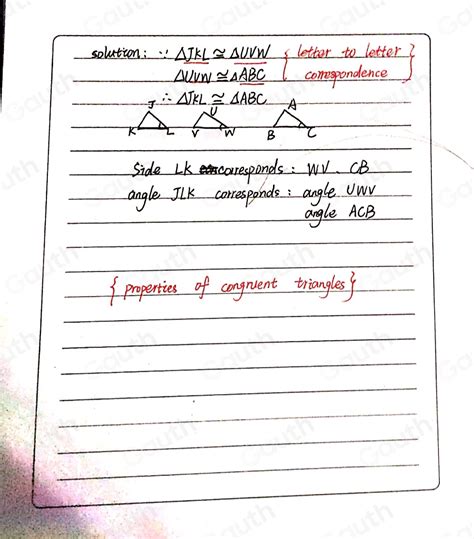 solution: ∵ △JKL ≅ △UVW { letter to letter
△UVW ≅ △ABC correspondence }
∴ △JKL ≅ △ABC
J U A
K L V W B C
Side LK coresponds: WV. CB
angle JLK corresponds: angle UWV
angle ACB
{ properties of congruent triangles }
Gauth